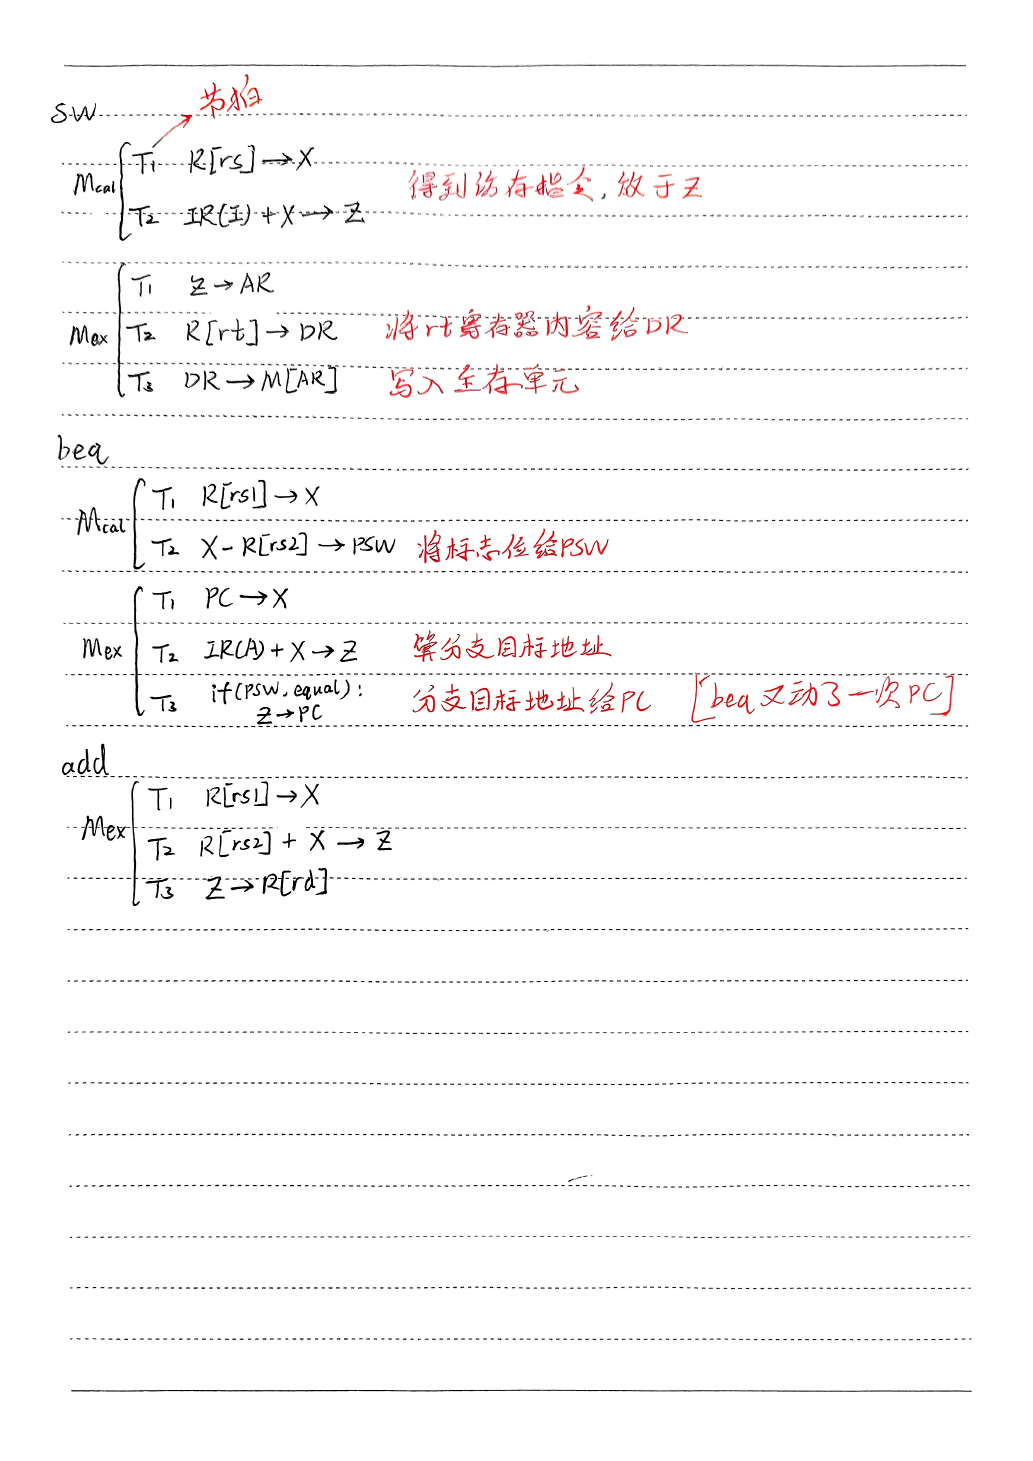 sw
节拍
Mcal
T1 R[rs]→X
得到访存指令，放于Z
T2 IR(I)+X→Z
Mex
T1 Z→AR
T2 R[rt]→DR 将rt寄存器内容给DR
T3 DR→M[AR] 写入主存单元
beq
Mcal
T1 R[rs1]→X
T2 X-R[rs2]→PSW 将标志位给PSW
Mex
T1 PC→X
T2 IR(A)+X→Z 算分支目标地址
T3 if(PSW.equal):
Z→PC
分支目标地址给PC [beq又动了一次PC]
add
Mex
T1 R[rs1]→X
T2 R[rs2]+X→Z
T3 Z→R[rd]